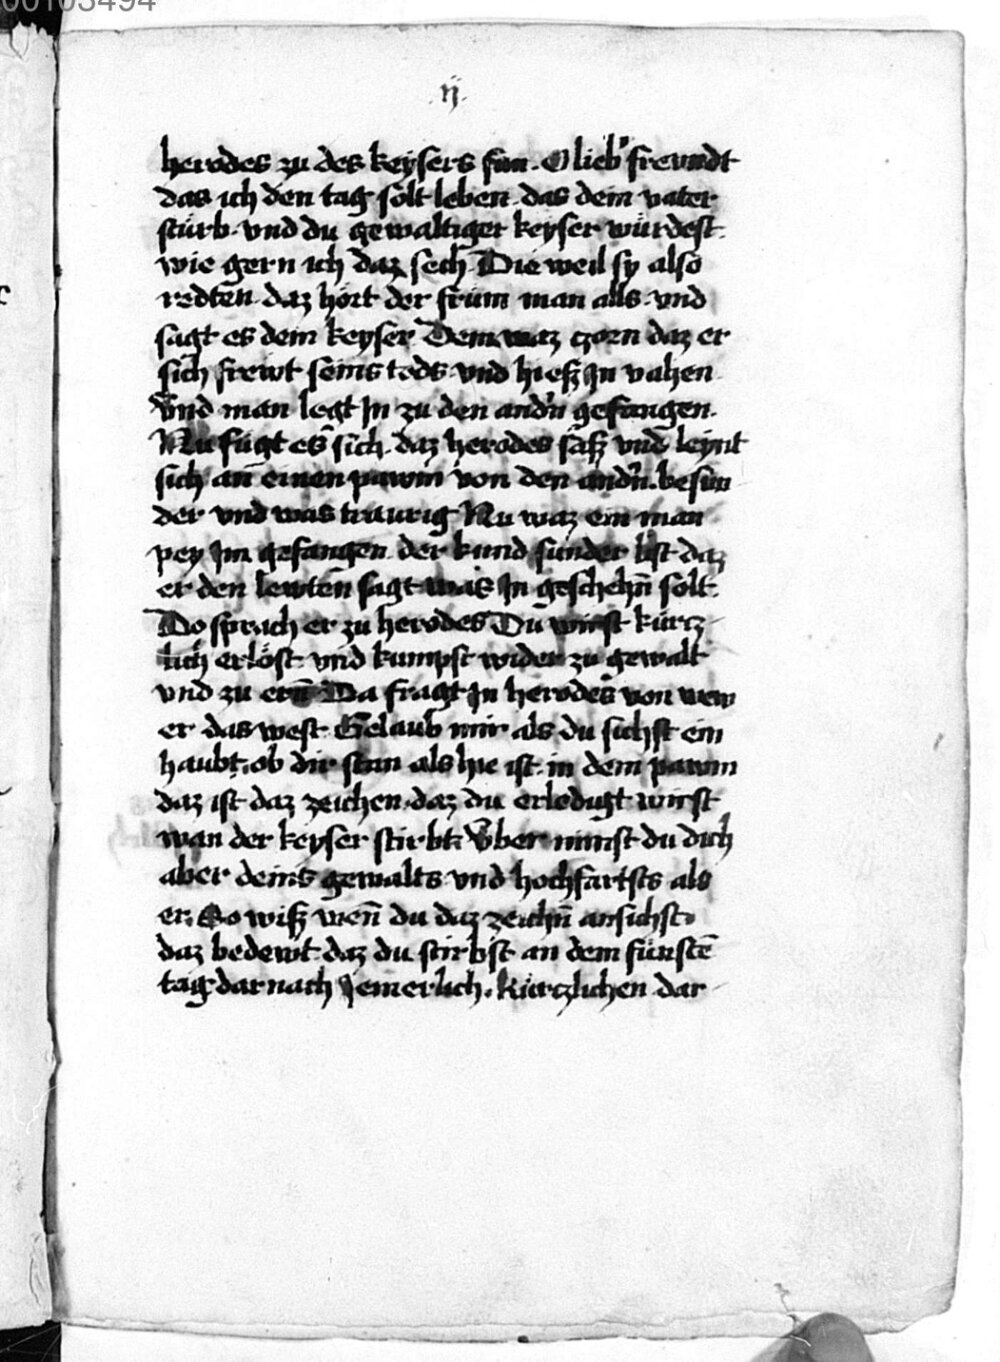 00103494
ij
herodes zu des keysers sun. O lieb' frewndt
das ich den tag solt leben. das dein vater
stürb. vnd du gewaltiger keyser würdest.
wie gern ich daz sech. Die weil sy also
redten. daz hört der frum man alls. vnd
sagt es dem keyser. Dem waz czorn daz er
sich frewt seins tods. vnd hiesz In vahen.
Vnd man legt In zu den andn gefangen.
Nu fügt es sich. daz herodes sasz vnd leynt
sich an einen pawm von den andn. besun
der vnd was traurig Nu waz ein man
pey Im gefangen. der kund sunder list daz
er den lewten sagt was In geschehn solt.
Do sprach er zu herodes Du wirst kürcz
lich erlöst. vnd kumpst wider zu gewalt
vnd zu ern Da fragt In herodes von wew
er das west. Gelaub mir als du sichst ein
haubt. ob dir stan als hie ist. in dem pawm
daz ist daz zeichen. daz du erledigt wirst
wan der keyser stirbt. Vber nimst du dich
aber deins gewalts. vnd hochfartsts als
er. So wisz wen̄ du daz zeichn̄ ansichst.
daz bedewt. daz du stirbst an dem fünftē
tag darnach Jemerlich. Kürczlichen dar